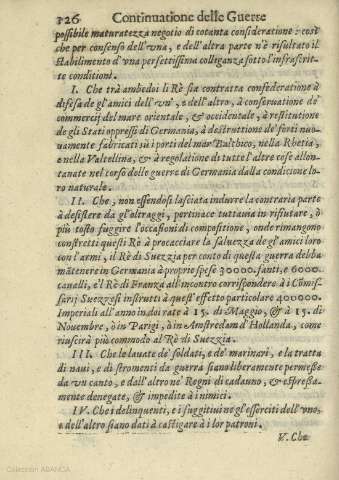 326 Continuatione delle Guerre
possibile maturatezza negotio di cotanta consideratione: così
che per consenso dell'vna, e dell'altra parte n'è risultato il
stabilimento d'vna perfettissima colleganza sotto l'infrascrit-
te conditioni.
I. Che trà ambedoi li Rè sia contratta consideratione à
difesa de gl'amici dell'vn', e dell'altro, à conseruatione de'
commercij del mare orientale, & occidentale, à restitutione
de gli Stati oppressi di Germania, à destruttione de' forti nuo-
uamente fabricati sù i porti del mar Balthico, nella Rhetia,
e nella Valtellina, & à regolatione di tutte l'altre cose allon-
tanate nel corso delle guerre di Germania dalla conditione lo-
ro naturale.
II. Che, non essendosi lasciata indurre la contraria parte
à desistere da gl'oltraggi, pertinace tuttauia in rifiutare, ò
più tosto fuggire l'occasioni di compositione, onde rimangono
constretti questi Rè à procacciare la saluezza de gl'amici loro
con l'armi, il Rè di Suezzia per conto di questa guerra debba
mãtenere in Germania à proprie spese 30000. fanti, e 6000.
caualli, e'l Rè di Franza all'incontro corrispondere à i Cõmis-
sarij Suezzesi instrutti à quest'effetto particolare 400000.
Imperiali all'anno in doi rate à 15. di Maggio, & à 15. di
Nouembre, ò in Parigi, ò in Amstredam d'Hollanda, come
riuscirà più commodo al Rè di Suezzia.
III. Che le leuate de' soldati, e de' marinari, e la tratta
di naui, e di stromenti da guerra siano liberamente permesse
da vn canto, e dall'altro ne' Regni di cadauno, & espressa-
mente denegate, & impedite à inimici.
IV. Che i delinquenti, e i fuggitiui ne gl'esserciti dell'vno,
e dell'altro siano dati à castigare à i lor patroni.
V. Che
Colección ABANCA